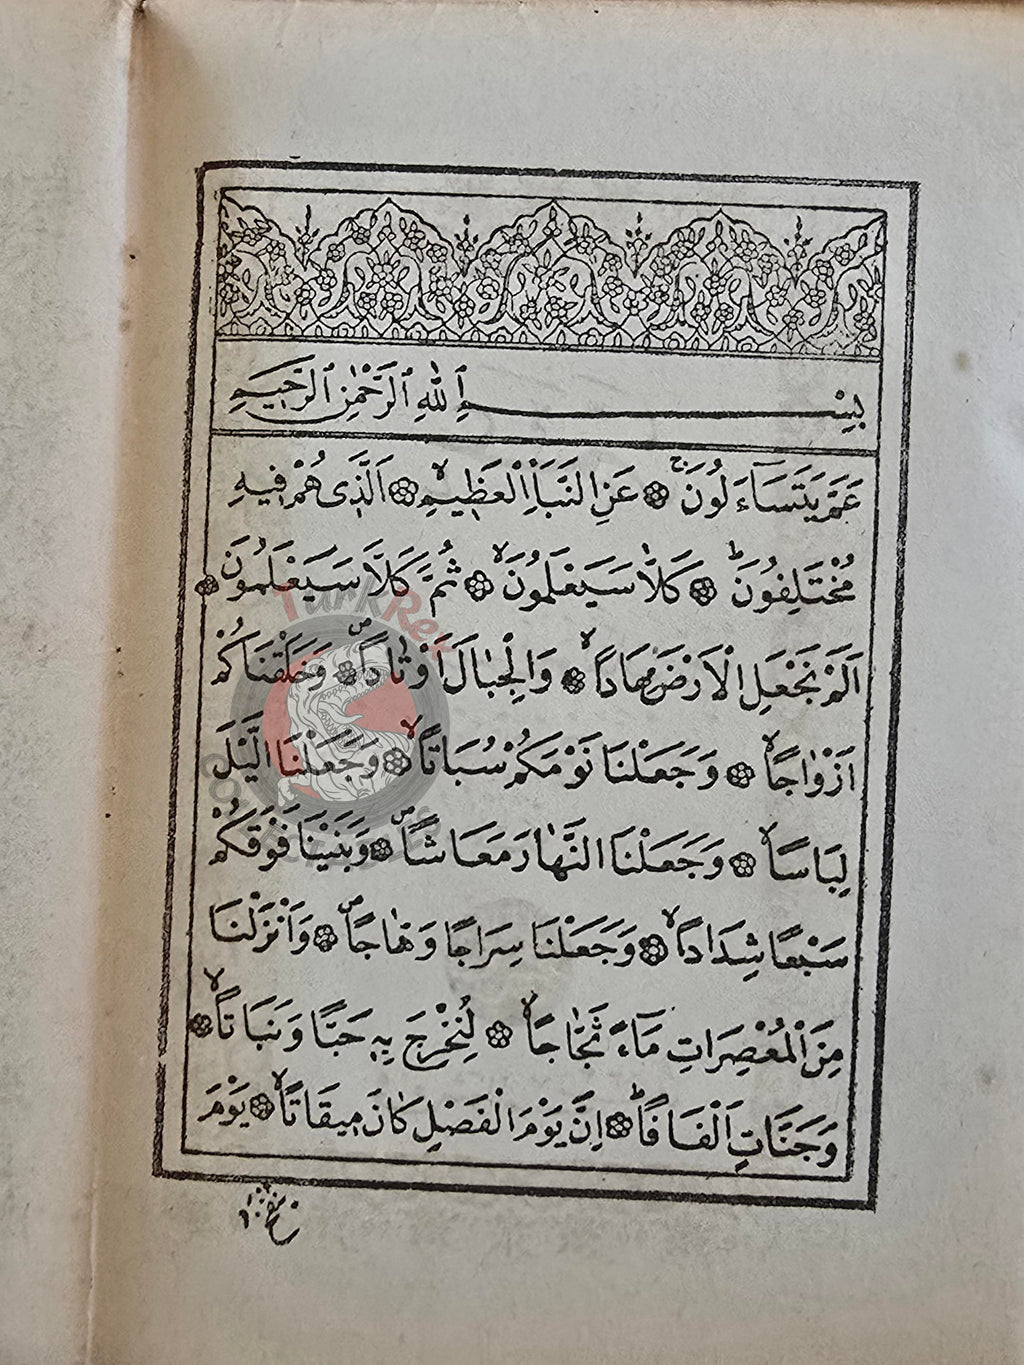 بِسْــــــمِ ٱللّٰهِ ٱلرَّحْمٰنِ ٱلرَّحِيمِ
عَمَّ يَتَسَآءَلُونَۚ ❁ عَنِ النَّبَأِ الْعَظٖيمِۙ ❁ اَلَّذٖى هُمْ فٖيهِ
مُخْتَلِفُونَؕ ❁ كَلَّا سَيَعْلَمُونَۙ ❁ ثُمَّ كَلَّا سَيَعْلَمُونَ ❁
اَلَمْ نَجْعَلِ الْاَرْضَ مِهَادًاۙ ❁ وَالْجِبَالَ اَوْتَادًاۖ ❁ وَخَلَقْنَاكُمْ
اَزْوَاجًاۙ ❁ وَجَعَلْنَا نَوْمَكُمْ سُبَاتًاۙ ❁ وَجَعَلْنَا الَّيْلَ
لِبَاسًاۙ ❁ وَجَعَلْنَا النَّهَارَ مَعَاشًاۖ ❁ وَبَنَيْنَا فَوْقَكُمْ
سَبْعًا شِدَادًاۙ ❁ وَجَعَلْنَا سِرَاجًا وَهَّاجًاۖ ❁ وَاَنْزَلْنَا
مِنَ الْمُعْصِرَاتِ مَآءً ثَجَّاجًاۙ ❁ لِنُخْرِجَ بِهٖ حَبًّا وَنَبَاتًاۙ ❁
وَجَنَّاتٍ اَلْفَافًاؕ ❁ اِنَّ يَوْمَ الْفَصْلِ كَانَ مٖيقَاتًاۙ ❁ يَوْمَ
TurkRet